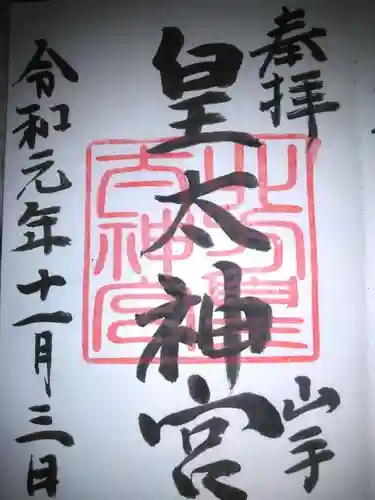 奉拝
山手
皇太神宮
令和元年十一月三日